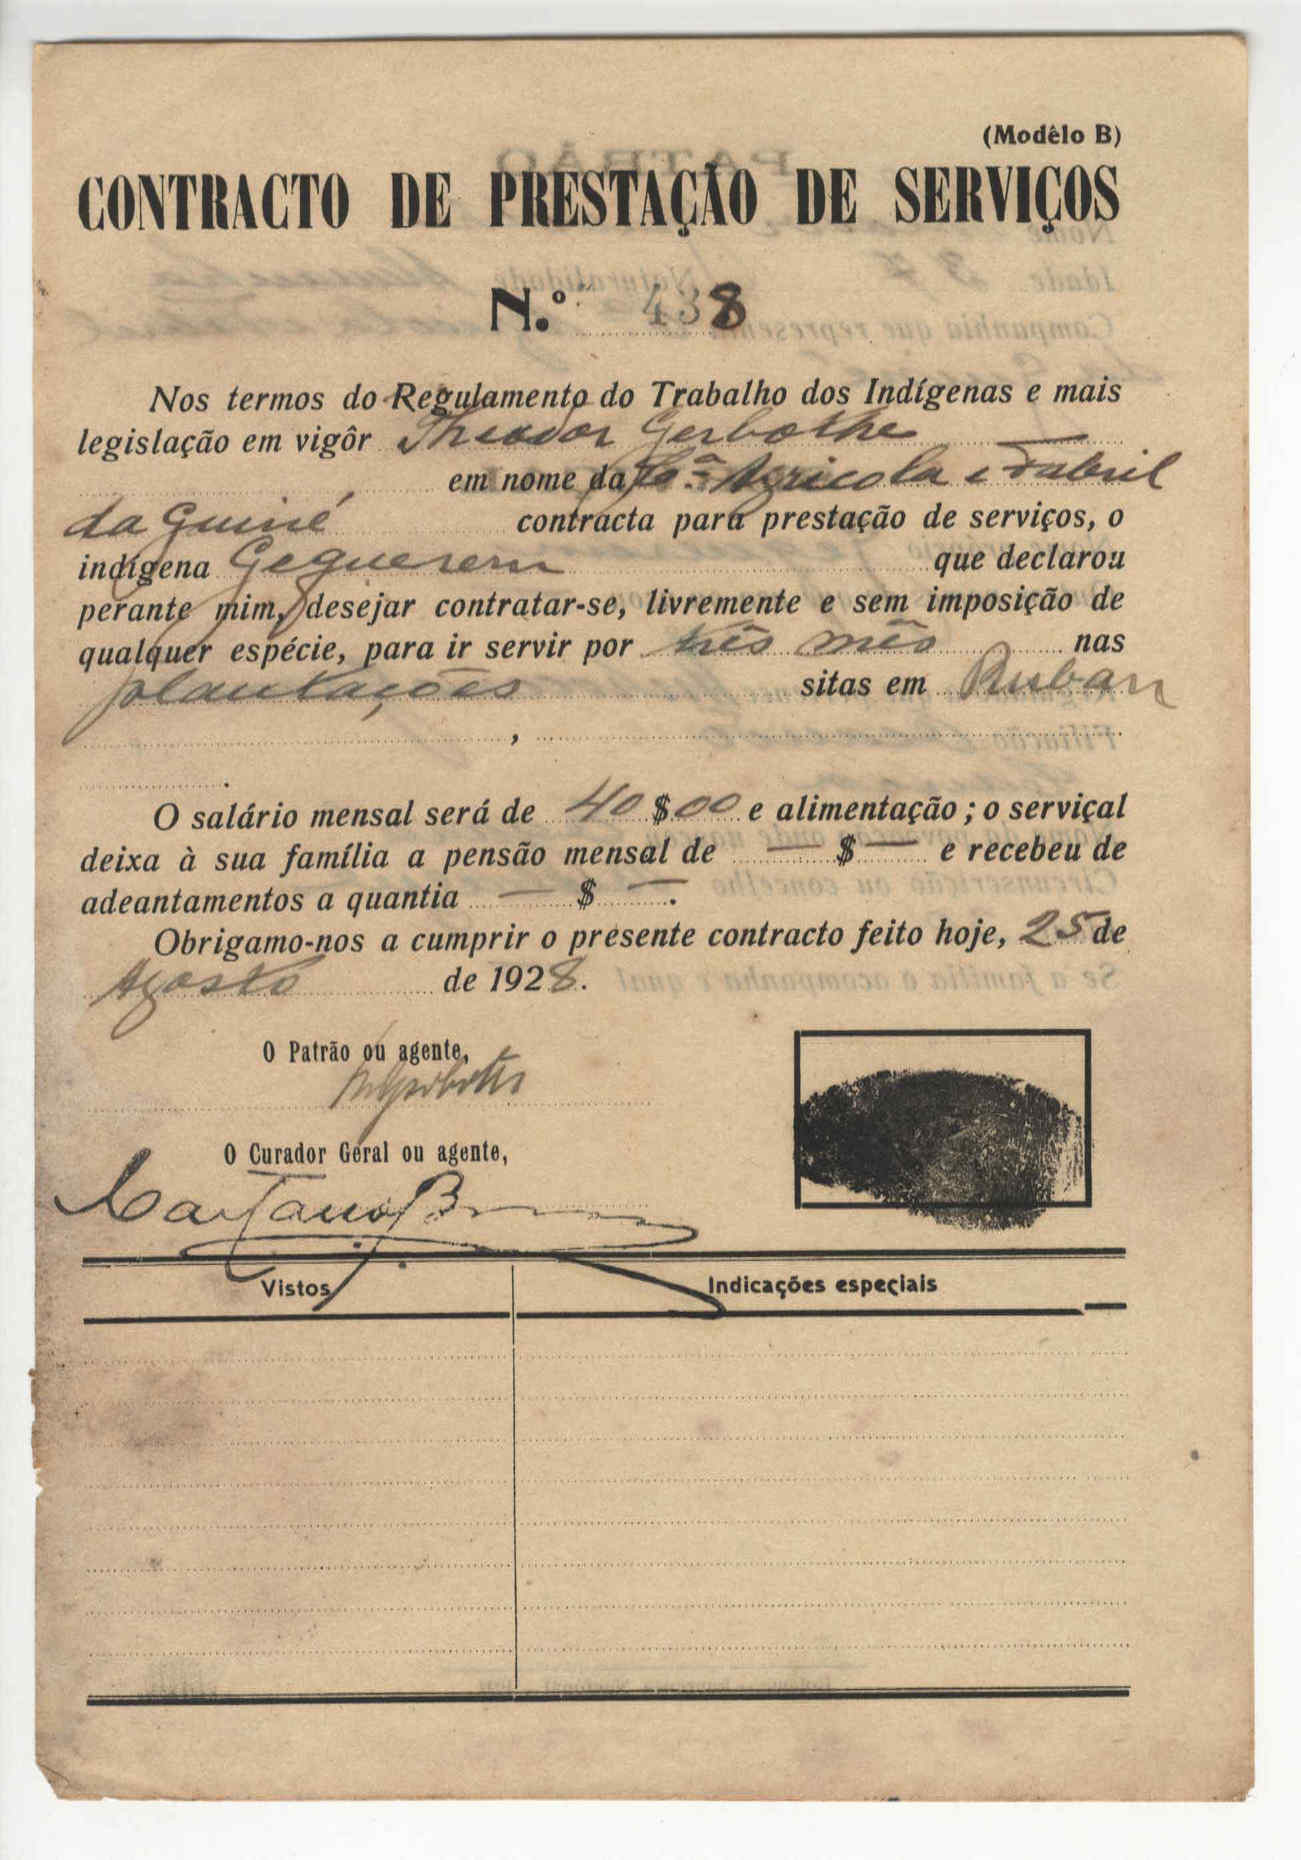 (Modêlo B)
CONTRACTO DE PRESTAÇÃO DE SERVIÇOS
N.º 438
Nos termos do Regulamento do Trabalho dos Indígenas e mais
legislação em vigôr Theodor Gerbothe
em nome da Cª Agricola e Fabril
da Guiné contracta para prestação de serviços, o
indígena Gequerem que declarou
perante mim, desejar contratar-se, livremente e sem imposição de
qualquer espécie, para ir servir por três mês nas
plantações sitas em Ruban
,
.
O salário mensal será de 40$00 e alimentação; o serviçal
deixa à sua família a pensão mensal de — $ — e recebeu de
adeantamentos a quantia — $ — .
Obrigamo-nos a cumprir o presente contracto feito hoje, 25 de
Agosto de 1928.
O Patrão ou agente,
O Curador Geral ou agente,
Caetano
Vistos
Indicações especiais